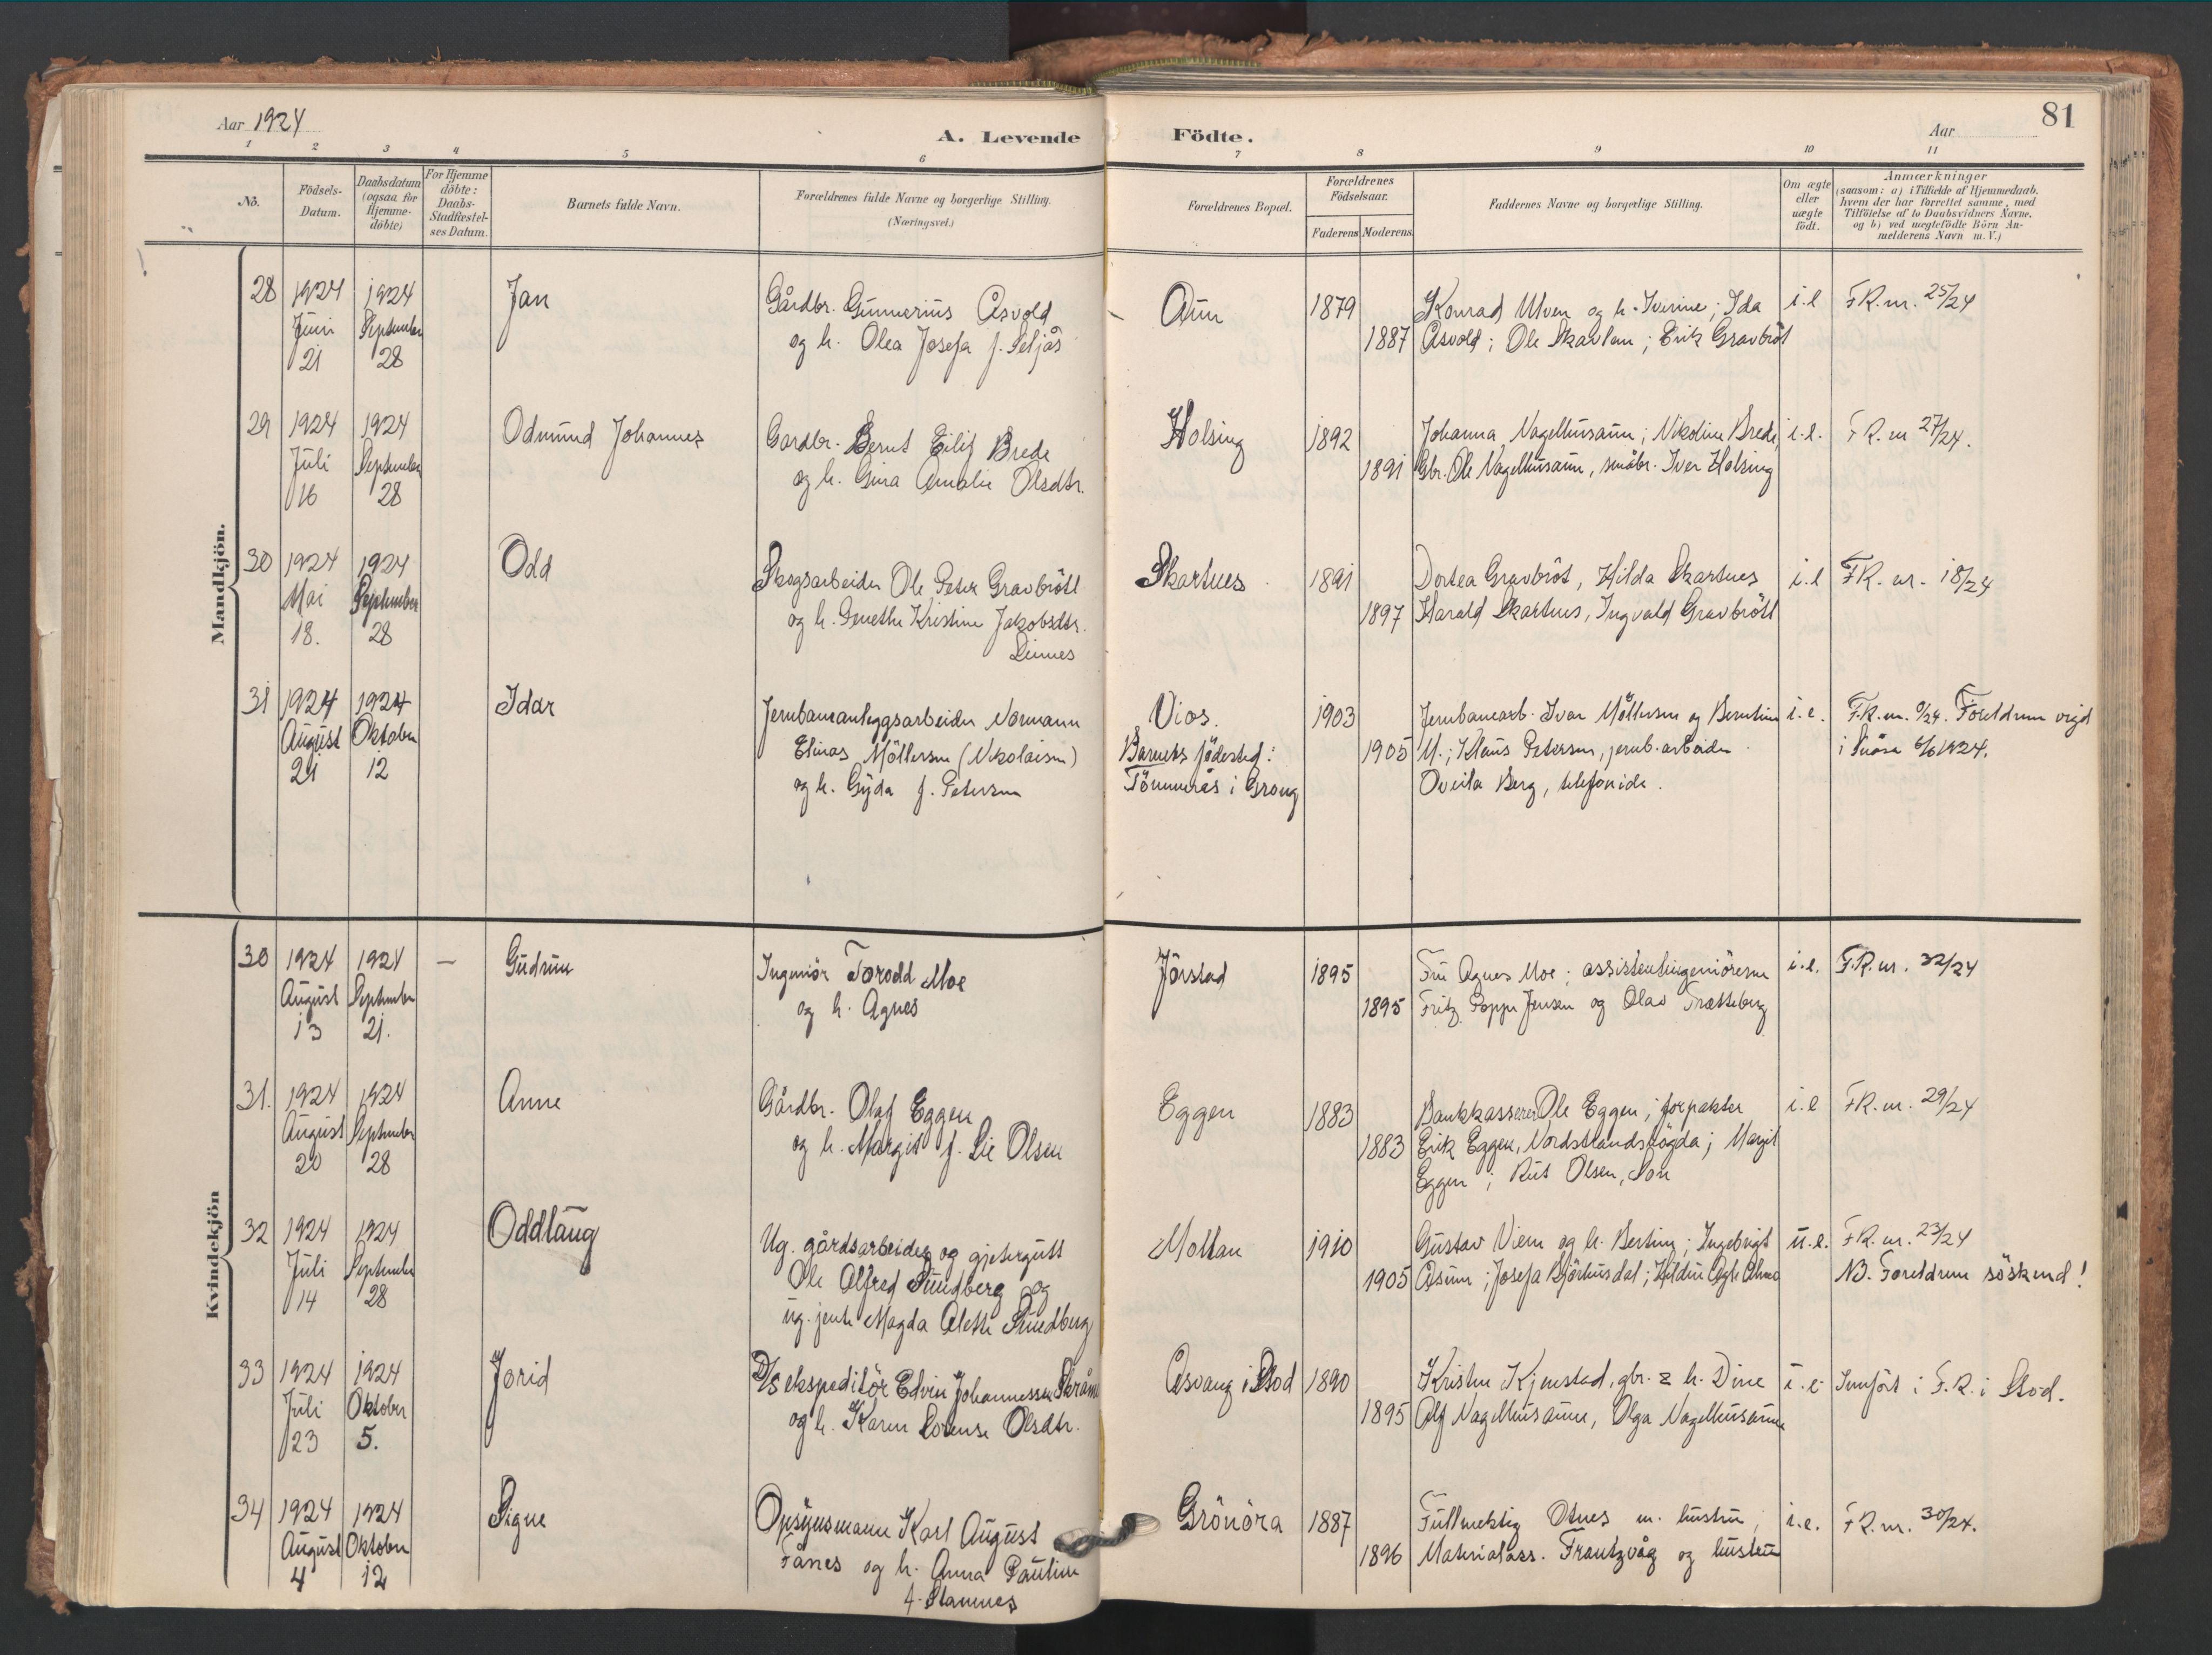 Aar 1924
A. Levende Födte.
Aar
81
1 2 3 4 5 6 7 8 9 10 11
No.
Födsels-
Datum.
Daabsdatum
(ogsaa for
Hjemme-
döbte)
For Hjemme
döbte:
Daabs-
Stadfæstel-
ses Datum.
Barnets fulde Navn.
Forældrenes fulde Navne og borgerlige Stilling.
(Næringsvei.)
Forældrenes Bopæl.
Forældrenes
Födselsaar.
Faderens
Moderens
Faddernes Navne og borgerlige Stilling.
Om ægte
eller
uægte
födt.
Anmærkninger
(saasom: a) i Tilfælde af Hjemmedaab,
hvem der har forrettet samme, med
Tilföielse af to Daabsvidners Navne,
og b) ved uægtefödte Börn An-
melderens Navn m. V.)
Mandkjön.
28
1924
Juni
21
1924
September
28
Jan
Gårdbr. Gunnerius Åsvold
og h. Olea Josefa f. Seljås
Aun
1879
1887
Konrad Ulven og h. Iverine; Ida
Åsvold; Ole Skavlan; Erik Gravbröt
i.e
F.R. nr. 25/24
29
1924
Juli
16
1924
September
28
Odmund Johannes
Gardbr. Bernt Eilif Brede
og h. Gina Amalie Olsdtr.
Holsing
1892
1891
Johanna Nagelhusaun; Nikoline Brede,
Gbr. Ole Nagelhusaun, småbr. Iver Holsing
i.e.
F.R. nr 27/24.
30
1924
Mai
18.
1924
September
28
Odd
Skogsarbeider Ole Peter Gravbrött
og h. Kristine Jakobsdtr.
Skartnes
1891
1897
Dortea Gravbröt, Hilda Skartnes
Harald Skartnes, Ingvald Gravbrött
i.e
F.R. nr. 18/24
31
1924
August
21
1924
Oktober
12
Idar
Jernbaneanleggsarbeider Normann
Elinas Möllersen (Nikolaisen)
og h. Gyda f. Petersen
Vios.
Barnets födested:
Tömmerås i Grong
1903
1905
Jernbanearb. Ivar Möllersen og Berntine
M.; Klaus Petersen, jernb.arbeider
Berg, telefonide.
i.e.
F.R. nr. Foreldrene vigd
i Snåsa 6/6 1924.
Kvindekjön
30
1924
August
13
1924
September
21.
—
Gudrun
Ingeniör Torodd Moe
og h. Agnes
Jörstad
1895
1895
Fru Agnes Moe; assistentingeniörerne
Fritz Poppe Jensen og Olav Trætteberg
i.e.
F.R. nr. 32/24
31.
1924
August
20
1924
September
28
Anne
Gårdbr. Olaf Eggen
og h. Margit f. Lie Olsen
Eggen
1883
1883
Bankkasserer Ole Eggen; forpakter
Erik Eggen, Nordstrandshögda; Margit
Eggen; Rut Olsen, Son
i.e
F.R. nr. 29/24
32
1924
Juli
14
1924
September
28
Oddlaug
Ug. gårdsarbeider og gjetergutt
Ole Alfred Sundberg og
ug. jente Magda Alette Sundberg
Moltan
1910
1905
Gustav Viem og h. Bertine; Ingebrigt
Åsum; Josefa Björhusdal;
u.e.
F.R. nr. 23/24
NB. Foreldrene söskend!
33
1924
Juli
23
1924
Oktober
5.
Jorid
D/S ekspeditör Edvin Johannessen
og h. Karen Lorense Olsdtr.
Asvang i Stod
1890
1895
Kristen Kjenstad, gbr. & h. Dine
Alf Nagelhusaune, Olga Nagelhusaune
i.e.
Innfört i F.R. i Stod.
34
1924
August
4
1924
Oktober
12
Signe
Opsynsmann Karl August
Fånes og h. Anna Pauline
f. Stamnes
Grönöra
1887
1896
Fullmektig Otnes m. hustru;
Materialass. Frantzvåg og hustru
i.e.
F.R. nr. 30/24.